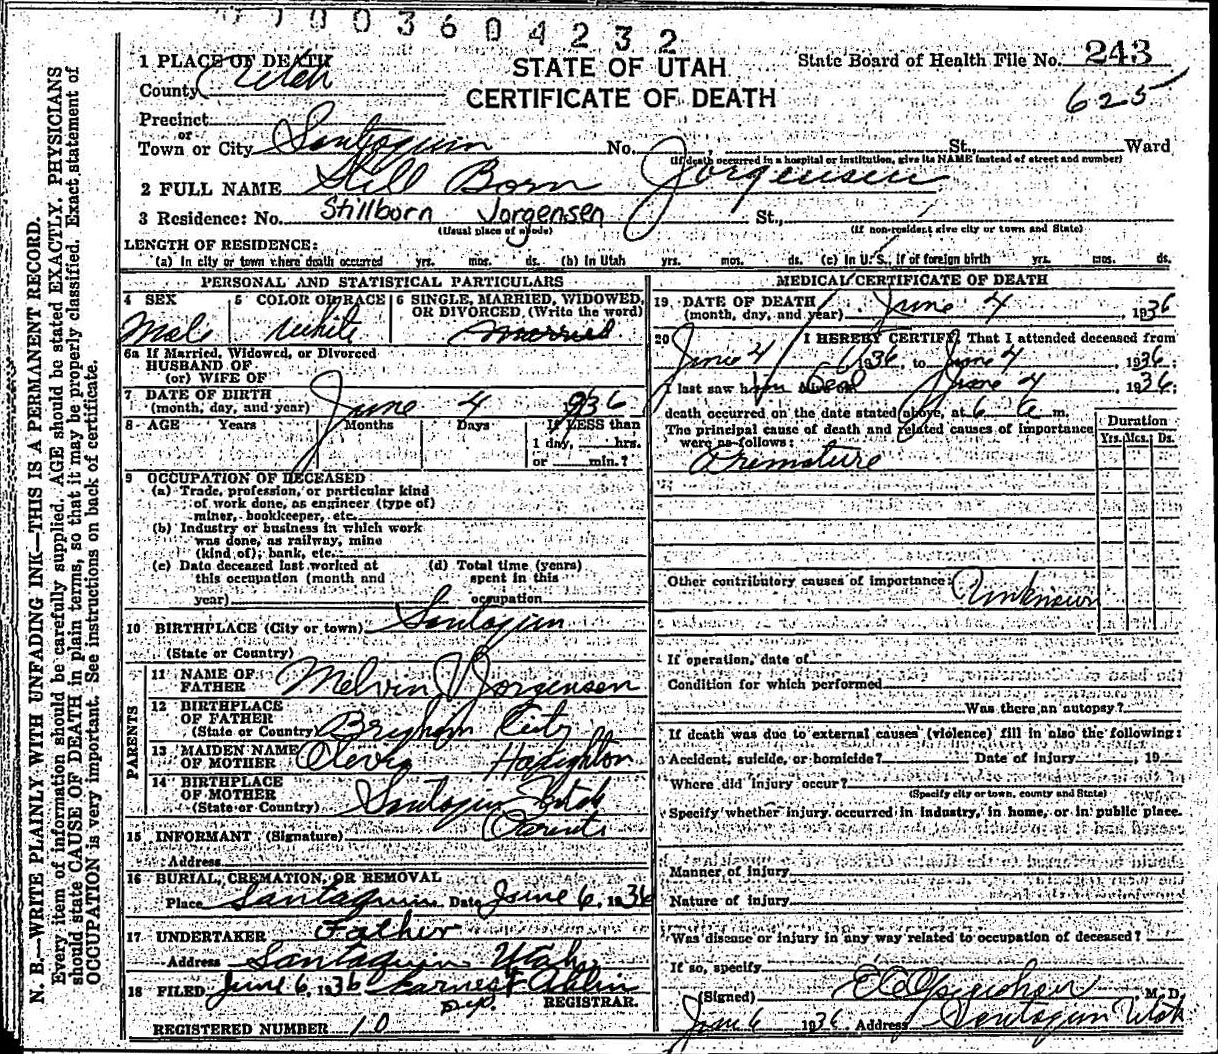 0003604232
1 PLACE OF DEATH
County Utah
STATE OF UTAH
CERTIFICATE OF DEATH
State Board of Health File No. 243
625
Precinct
or
Town or City Santaquin No. St., Ward
(If death occurred in a hospital or institution, give its NAME instead of street and number)
2 FULL NAME Still Born Jorgensen
3 Residence: No. Stillborn Jorgensen St.,
(Usual place of abode) (If non-resident give city or town and State)
LENGTH OF RESIDENCE:
(a) In city or town where death occurred yrs. mos. ds. (b) In Utah yrs. mos. ds. (c) In U. S., if of foreign birth yrs. mos. ds.
PERSONAL AND STATISTICAL PARTICULARS
4 SEX
Male
5 COLOR OR RACE
White
6 SINGLE, MARRIED, WIDOWED,
OR DIVORCED (Write the word)
married
6a If Married, Widowed, or Divorced
HUSBAND OF
(or) WIFE OF
7 DATE OF BIRTH
(month, day, and year) June 4 936
8 AGE Years Months Days If LESS than
1 day, hrs.
or min.?
9 OCCUPATION OF DECEASED
(a) Trade, profession, or particular kind
of work done, as engineer (type of)
miner, bookkeeper, etc.
(b) Industry or business in which work
was done, as railway, mine
(kind of), bank, etc.
(c) Date deceased last worked at
this occupation (month and
year)
(d) Total time (years)
spent in this
occupation
10 BIRTHPLACE (City or town) Santaquin
(State or Country)
PARENTS
11 NAME OF
FATHER Melvin J Jorgensen
12 BIRTHPLACE
OF FATHER
(State or Country) Brigham City
13 MAIDEN NAME
OF MOTHER
14 BIRTHPLACE
OF MOTHER
(State or Country) Santaquin Utah
15 INFORMANT (Signature) Parents
Address
16 BURIAL, CREMATION, OR REMOVAL
Place Santaquin Date June 6, 1936
17 UNDERTAKER Father
Address Santaquin Utah
18 FILED June 6, 1936 Earnest
Dep. REGISTRAR.
REGISTERED NUMBER 10
MEDICAL CERTIFICATE OF DEATH
19 DATE OF DEATH
(month, day, and year) June 4, 1936
20 I HEREBY CERTIFY, That I attended deceased from
June 4, 1936, to June 4, 1936;
I last saw him alive on Dead June 4 1936;
death occurred on the date stated above, at 6 a m.
The principal cause of death and related causes of importance
were as follows:
Duration
Yrs. Mos. Ds.
Premature
Other contributory causes of importance: Unknown
If operation, date of
Condition for which performed
Was there an autopsy?
If death was due to external causes (violence) fill in also the following:
Accident, suicide, or homicide? Date of injury , 19
Where did injury occur?
(Specify city or town, county and State)
Specify whether injury occurred in industry, in home, or in public place.
Manner of injury
Nature of injury
Was disease or injury in any way related to occupation of deceased?
If so, specify
(Signed) M. D.
June 6 1936 Address Santaquin Utah
N. B.—WRITE PLAINLY WITH UNFADING INK—THIS IS A PERMANENT RECORD.
Every item of information should be carefully supplied. AGE should be stated EXACTLY. PHYSICIANS
should state CAUSE OF DEATH in plain terms, so that it may be properly classified. Exact statement of
OCCUPATION is very important. See instructions on back of certificate.